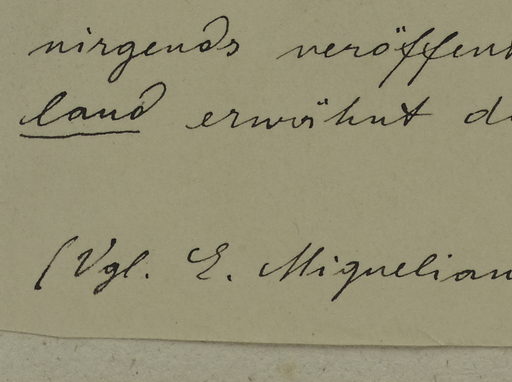 nirgends veröffent
land erwähnt d
(Vgl. E. Miguelian